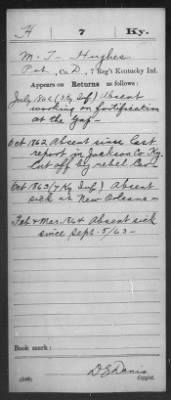 H 7 Ky.
M. T. Hughes
Pvt, Co. D, 7 Reg't Kentucky Inf.
Appears on Returns as follows:
July 1862 (7 Ky Inf) Absent
working on fortification
at the Gap—
Oct 1862 Absent since last
report in Jackson Co Ky.
Cut off by rebel Cav.
Oct 1863 (7 Ky Inf) Absent
sick in New Orleans—
Feb & Mar /64 Absent sick
since Sept. 5/63—
Book mark:
(546)
Copyist.